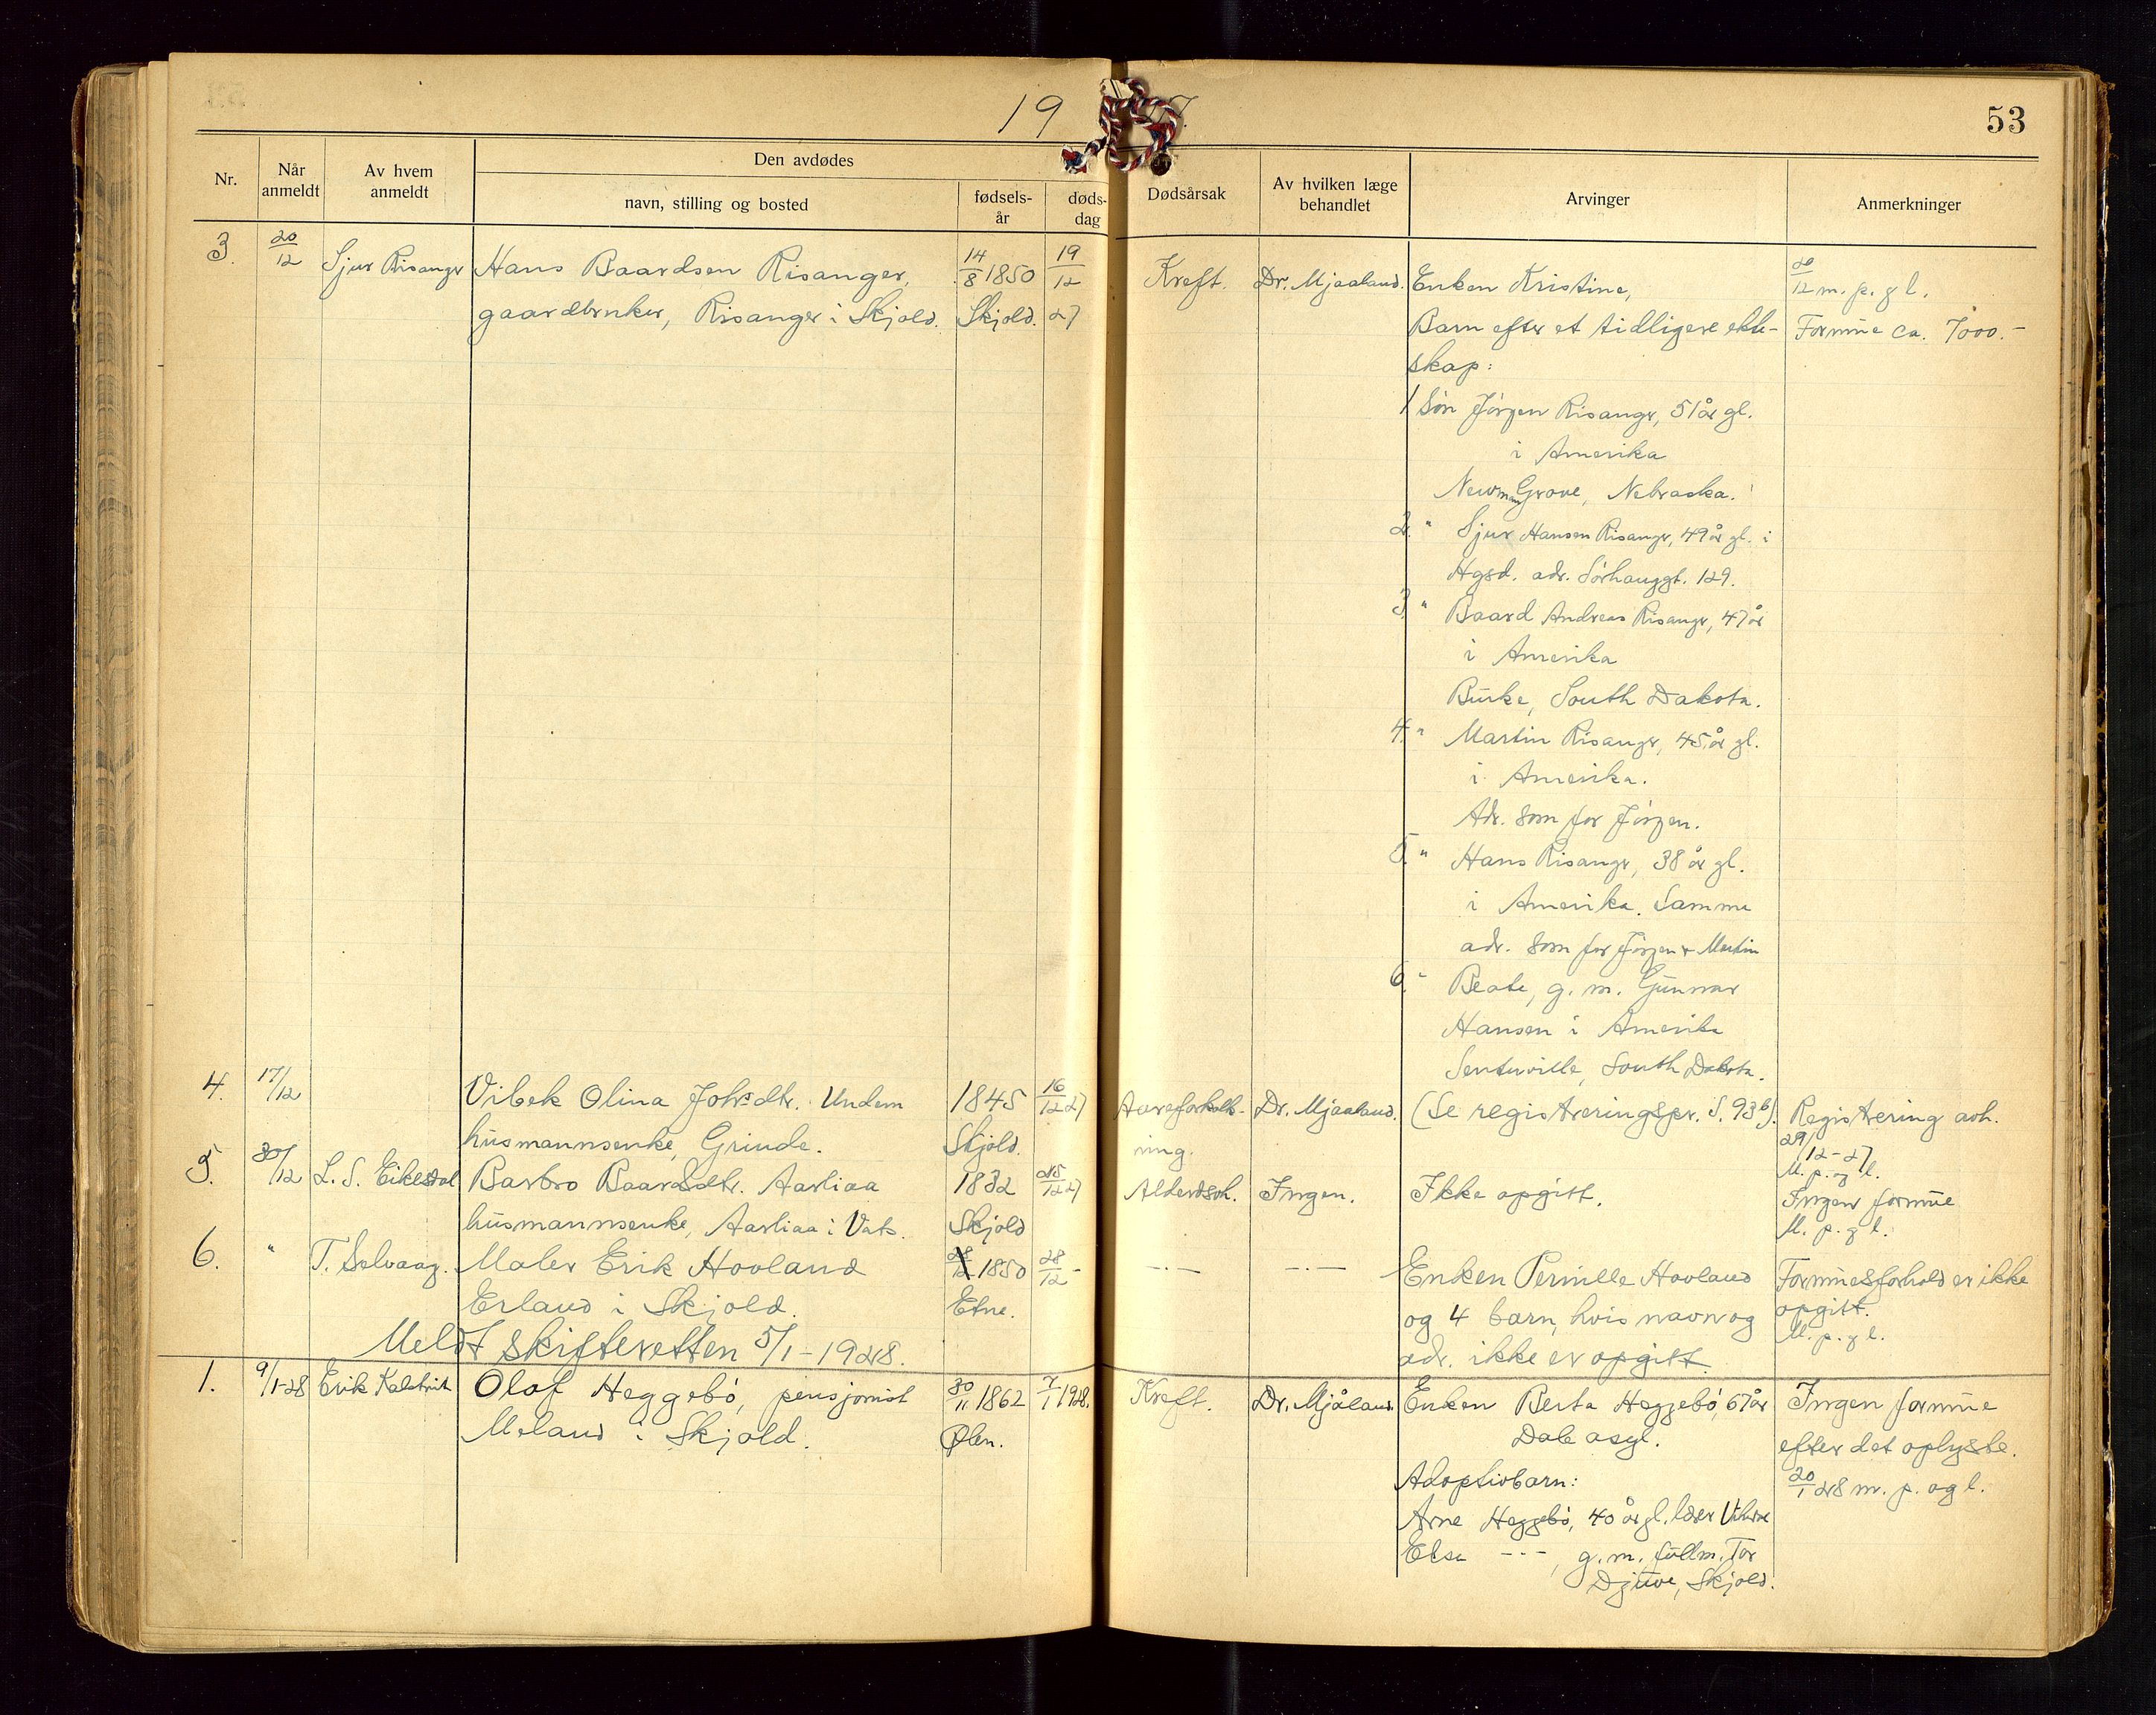 19 7.
53
Nr.
Når anmeldt
Av hvem anmeldt
Den avdødes
navn, stilling og bosted
fødsels-år
døds-dag
Dødsårsak
Av hvilken læge behandlet
Arvinger
Anmerkninger
3. 20/12 Sjur Risanger Hans Baardsen Risanger, 14/8 1850 19/12 Kreft. Dr. Mjaaland. Enken Kristine, 20/12 m. p. g l.
gaardbruker, Risanger i Skjold. Skjold. 27 Barn efter et tidligere ekte- Formue ca. 7000.-
skap:
1 Søn Jørgen Risanger, 51 år gl.
i Amerika
Newman Grove, Nebraska.
2. " Sjur Hansen Risanger, 49 år gl. i
Hgsd. adr. Sørhauggt. 129.
3. " Baard Andreas Risanger, 47 år
i Amerika
Burke, South Dakota.
4. " Martin Risanger, 45 år gl.
i Amerika.
Adr. som for Jørgen.
5. " Hans Risanger, 38 år gl.
i Amerika. Samme
adr. som for Jørgen & Martin
6. " Beate, g. m. Gunnar
Hansen i Amerika
Senterville, South Dakota.
4. 17/12 Vibek Olina Johsdtr. Undem 1845 16/12 27 Aareforkalk- Dr. Mjaaland. (Se registreringspr. S. 93b). Registrering avh.
husmannsenke, Grinde. Skjold. ning. 29/12-27
M. p. og l.
5. 30/12 L. S. Eikesdal Barbro Baardsdtr. Aarliaa 1832 25/12 27 Alderdsch. Ingen. Ikke opgitt. Ingen formue
husmannsenke, Aarliaa i Vats. Skjold M. p. g l.
6. " T. Solvaag. Maler Erik Hovland 28/12 1850 28/12 - -·- -·- Enken Pernille Hovland Formuesforhold er ikke
Erland i Skjold. Etne. og 4 barn, hvis navn og opgitt.
Meldt skifteretten 5/1-1928. adr. ikke er opgitt M. p. g l.
1. 9/1-28 Erik Kalstvit Olaf Heggebø, pensjonist 30/11 1862 7/1 1928. Kreft. Dr. Mjåland Enken Berta Heggebø, 67 år Ingen formue
Meland i Skjold. Ølen. Dale asyl. efter det oplyste.
Adoptivbarn: 20/1 28 m. p. og l.
Arne Heggebø, 40 år gl. lærer
Elsa ---, g. m. fullm. Tor
Djuve, Skjold.